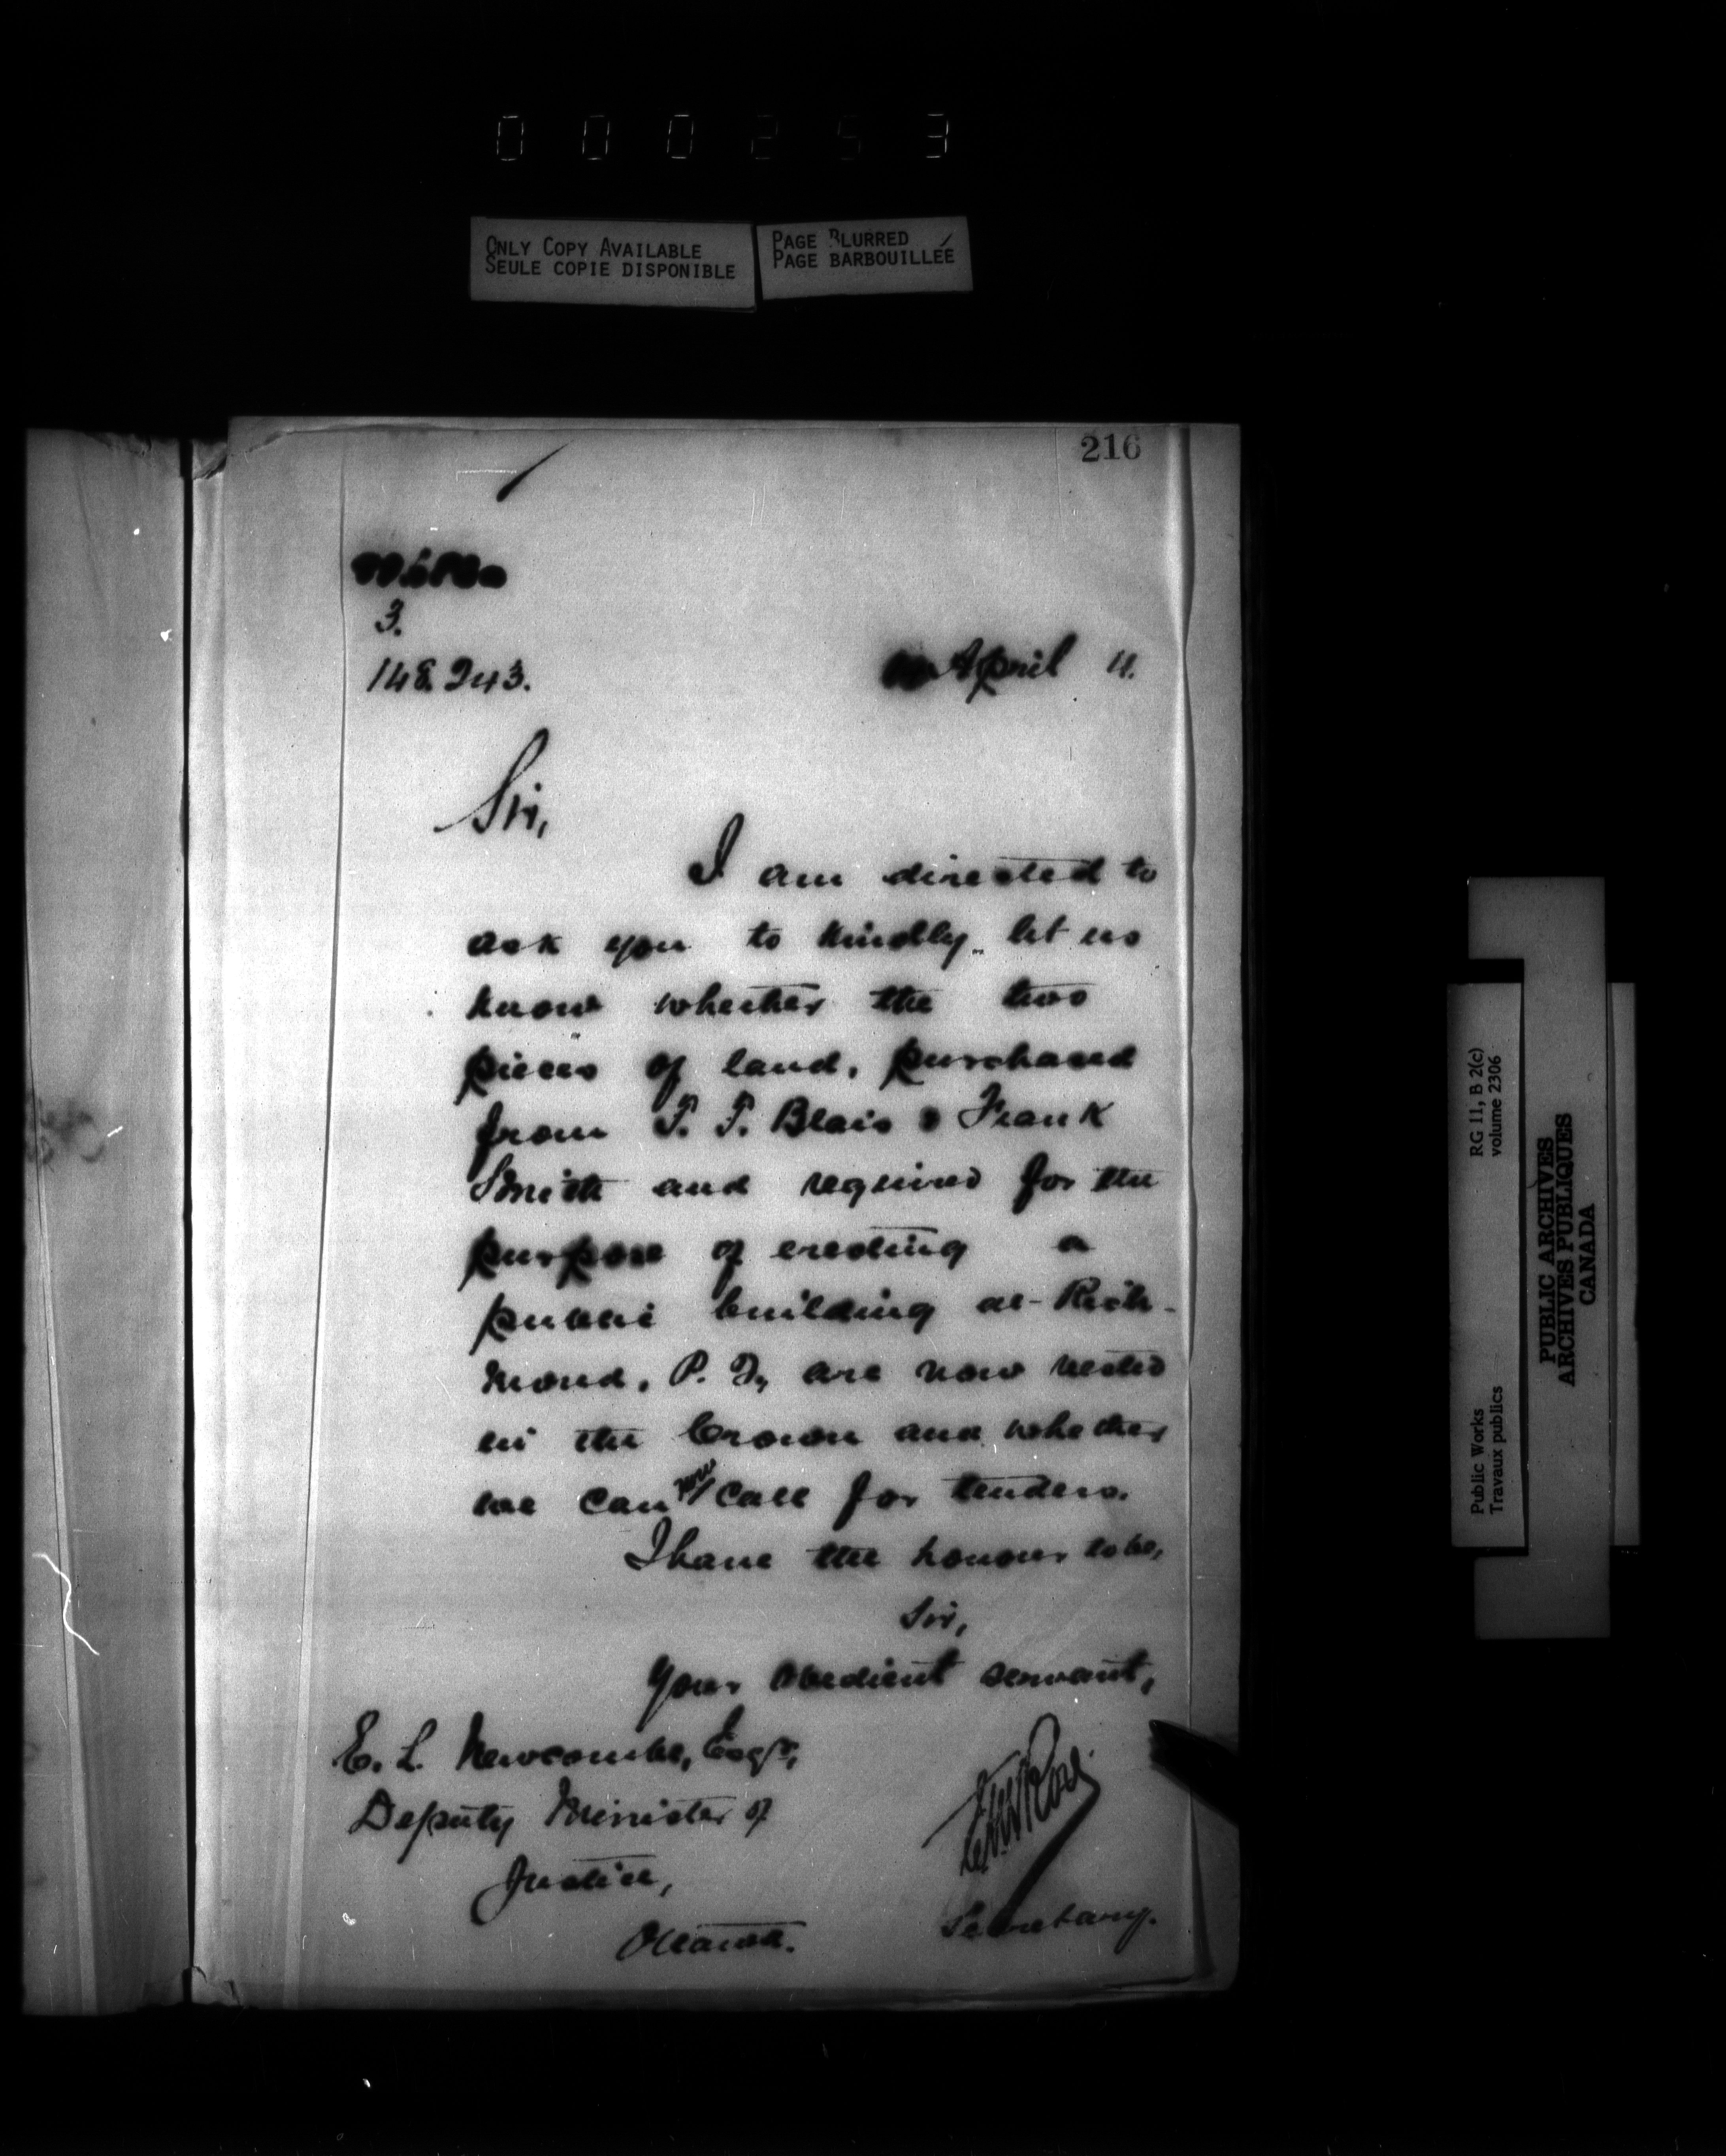 000253
ONLY COPY AVAILABLE
SEULE COPIE DISPONIBLE
PAGE BLURRED
PAGE BARBOUILLÉE
216
3.
148.243.
April 11.
Sir,
I am directed to
ask you to kindly let us
know whether the two
pieces of land, purchased
from T. T. Blais & Frank
Smith and required for the
purpose of erecting a
public building at Rich-
mond, P. Q., are now vested
in the Crown and whether
we can now call for tenders.
I have the honour to be,
Sir,
Your obedient servant,
E. L. Newcombe, Esqr,
Deputy Minister of
Justice,
Ottawa.
Secretary.
Public Works
Travaux publics
RG 11, B 2(c)
volume 2306
PUBLIC ARCHIVES
ARCHIVES PUBLIQUES
CANADA